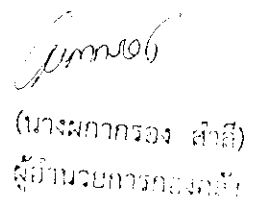 (นางผกากรอง สำลี)
ผู้อำนวยการกองคลัง